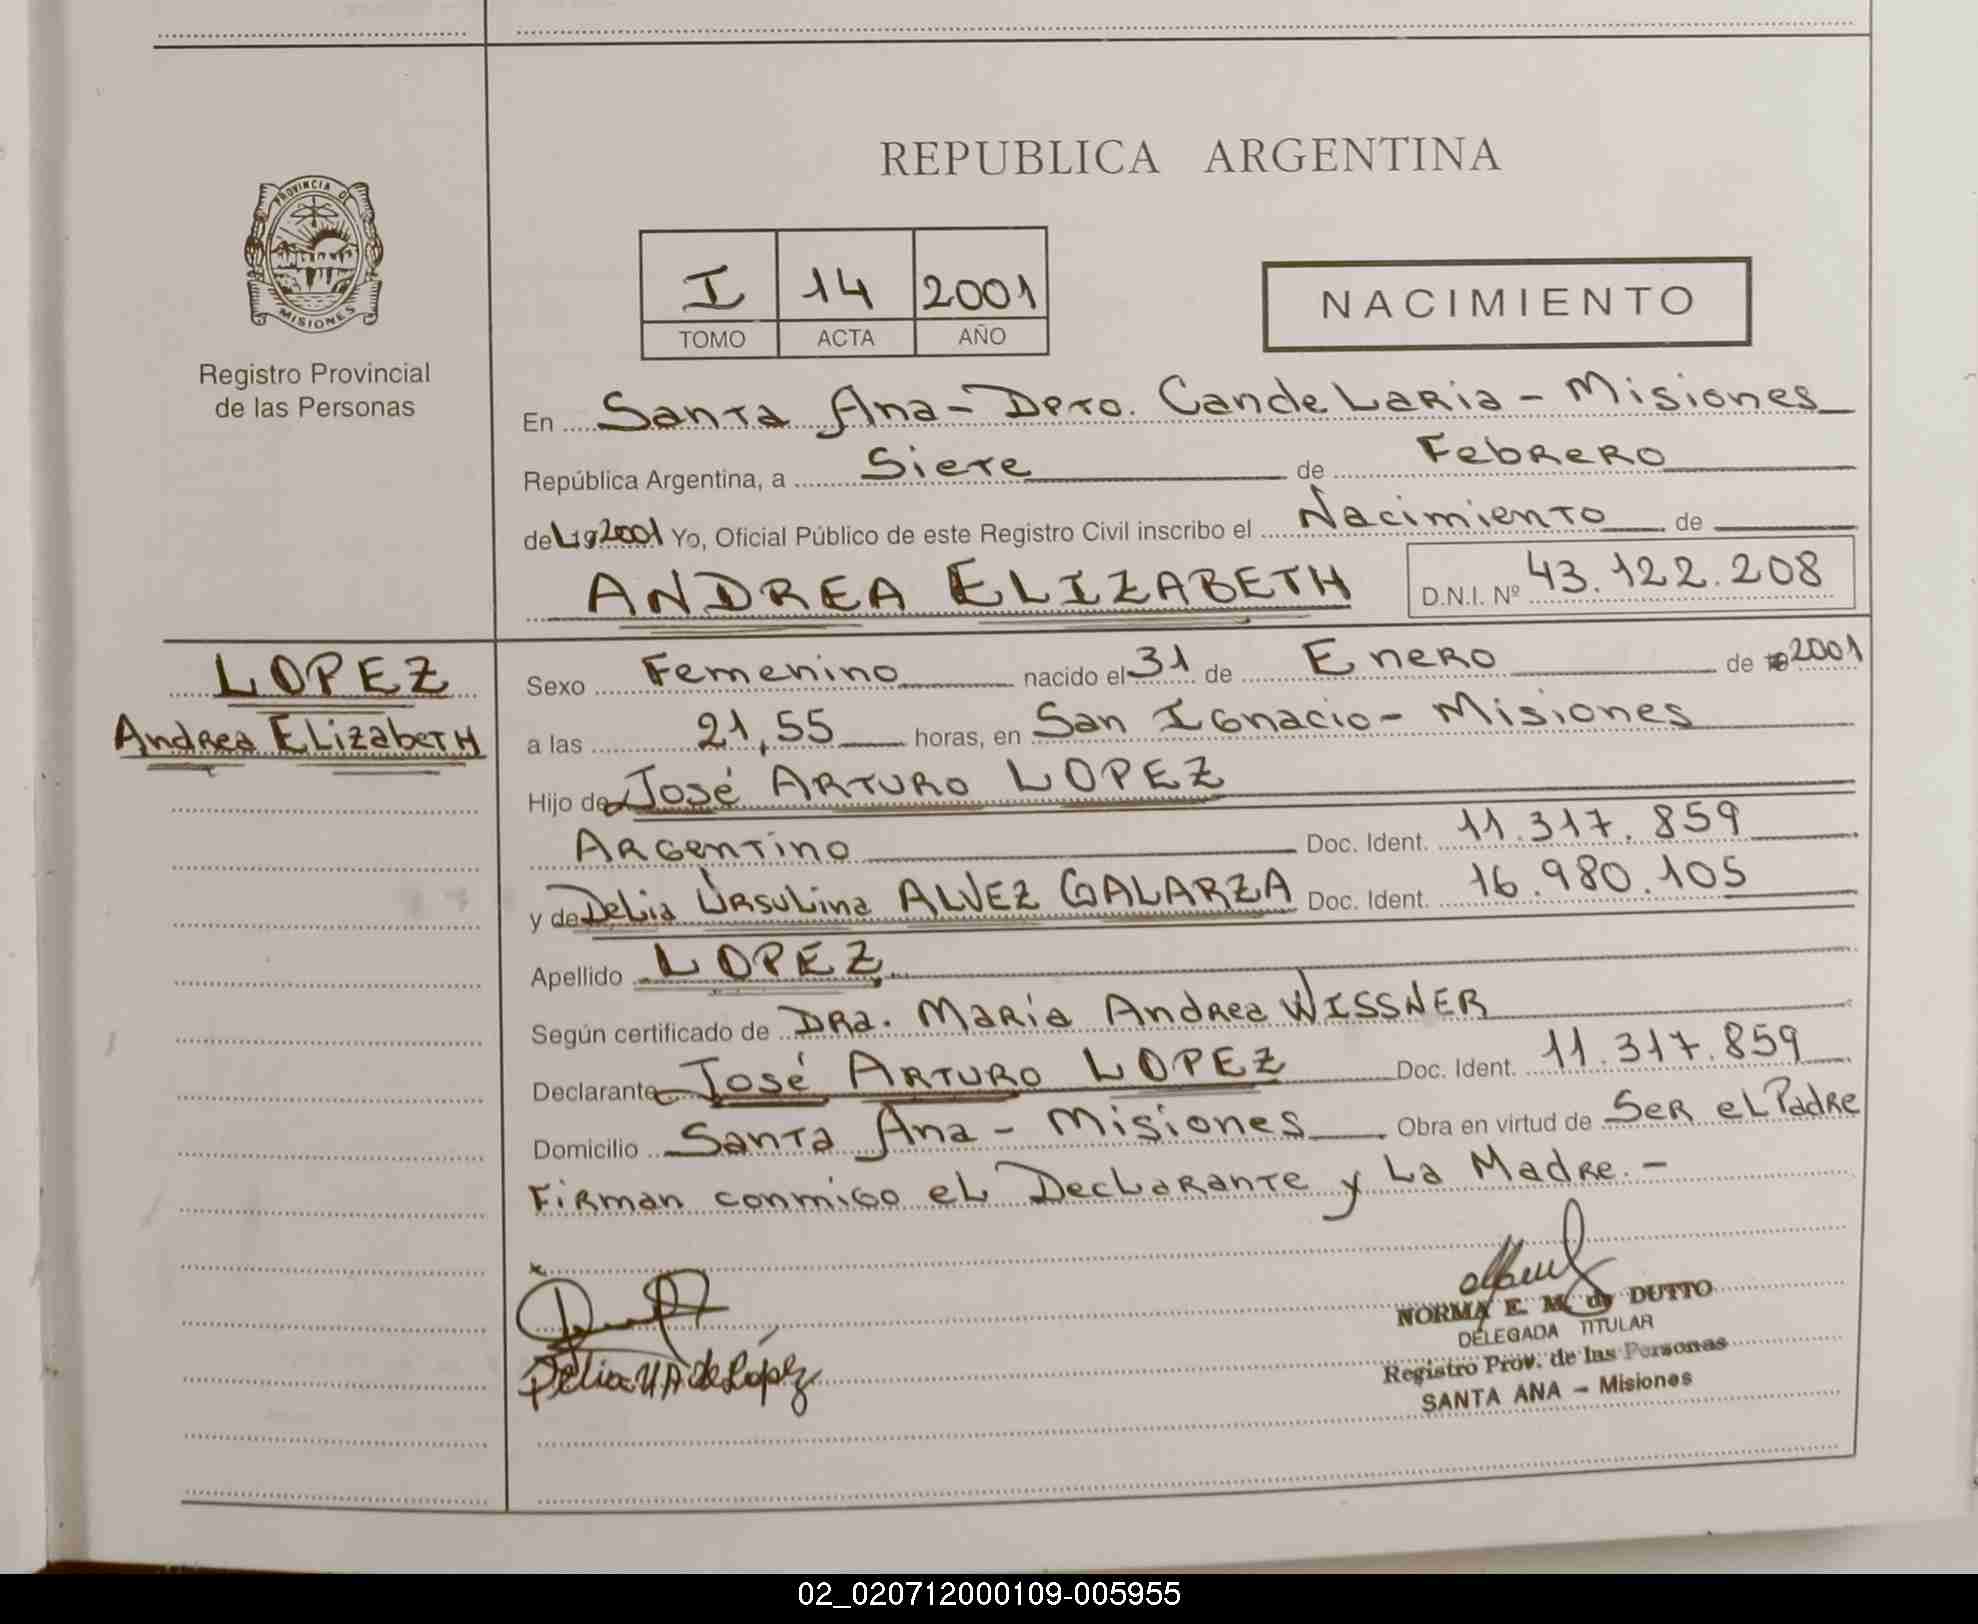 PROVINCIA DE
MISIONES
Registro Provincial
de las Personas
REPUBLICA ARGENTINA
I 14 2001
TOMO ACTA AÑO
NACIMIENTO
En Santa Ana - Dpto. Candelaria - Misiones
República Argentina, a Siete de Febrero
del 19 2001 Yo, Oficial Público de este Registro Civil inscribo el Nacimiento de
ANDREA ELIZABETH D.N.I. Nº 43.122.208
LOPEZ
Andrea Elizabeth
Sexo Femenino nacido el 31 de Enero de 2001
a las 21,55 horas, en San Ignacio - Misiones
Hijo de José Arturo LOPEZ
Argentino Doc. Ident. 11.317.859
y de Delia Ursulina ALVEZ GALARZA Doc. Ident. 16.980.105
Apellido LOPEZ.
Según certificado de Dra. María Andrea WISSNER
Declarante José Arturo LOPEZ Doc. Ident. 11.317.859
Domicilio Santa Ana - Misiones Obra en virtud de Ser el Padre
Firman conmigo el Declarante y La Madre. -
Delia U A de López
NORMA E. M. de DUTTO
DELEGADA TITULAR
Registro Prov. de las Personas
SANTA ANA - Misiones
02_020712000109-005955